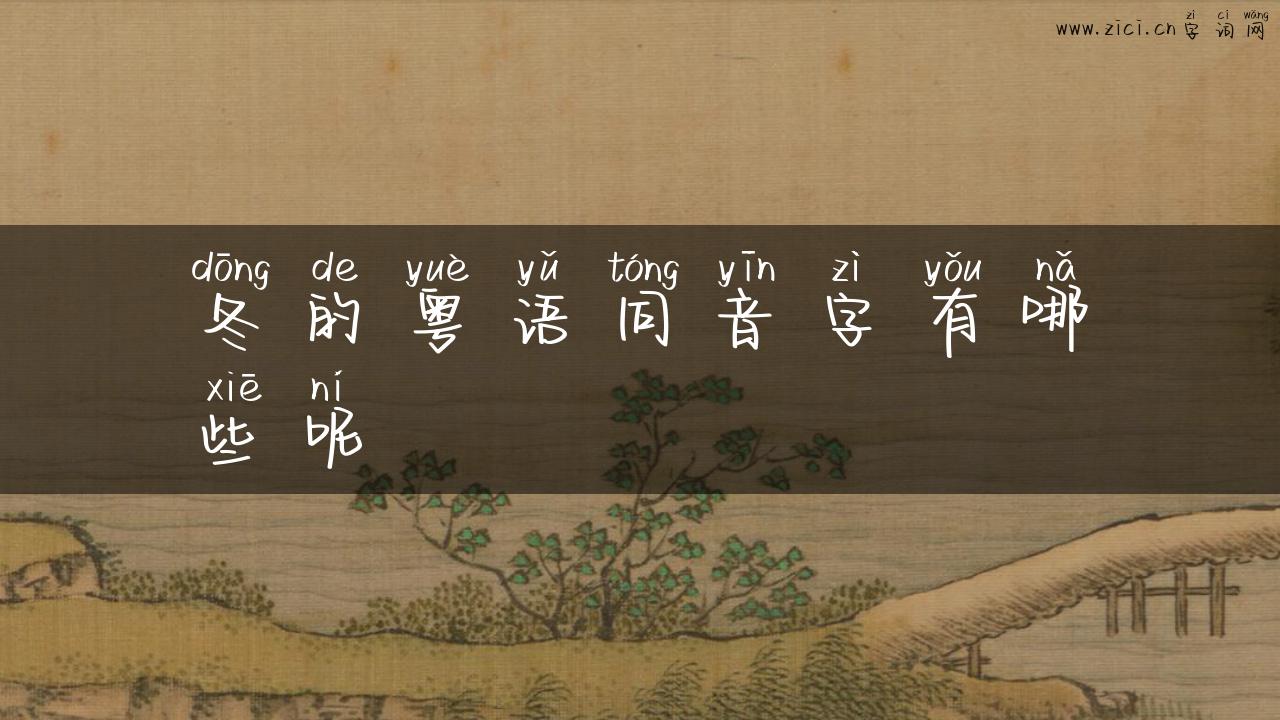 zì cí wǎng
www.zici.cn 字 词 网
dōng de yuè yǔ tóng yīn zì yǒu nǎ
冬 的 粤 语 同 音 字 有 哪
xiē ní
些 呢